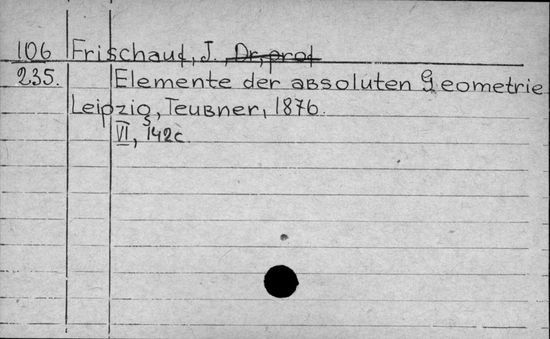 106 Frischauf, J., Dr, prof
235. Elemente der absoluten Geometrie
Leipzig, Teubner, 1876.
VI, 142c.